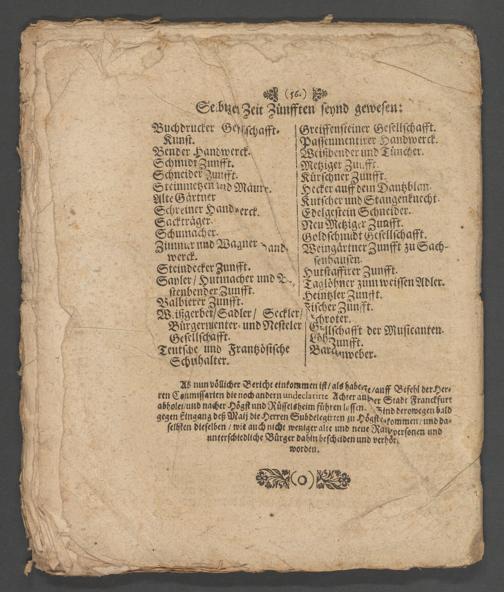 (56.)
Selbiger Zeit Zünfften seynd gewesen:
Buchdrucker Gesellschafft.
Kunst.
Bender Handwerck.
Schmidt Zunfft.
Schneider Zunfft.
Steinmetzen und Mäurer
Alte Gärtner
Schreiner Handwerck.
Sackträger.
Schumacher.
Zimmer und Wagner Hand-
werck.
Steindecker Zunfft.
Sayler / Hutmacher und
stenbender Zunfft.
Balbierer Zunfft.
Weißgerber / Sadler / Seckler /
Bürgermenter- und Nesteler
Gesellschafft.
Teutsche und Frantzösische
Schuhalter.
Greiffensteiner Gesellschafft.
Passementirer Handwerck.
Weißbender und Tüncher.
Metziger Zunfft.
Kürschner Zunfft.
Hecker auff dem Dantzblan.
Kutscher und Stangenknecht
Edelgestein Schneider.
Neu Metziger Zunfft.
Goldschmidt Gesellschafft.
Weingärtner Zunfft zu Sach-
senhausen.
Hutstaffirer Zunfft.
Taglöhner zum weissen Adler.
Heintzler Zunfft.
Fischer Zunfft.
Schroter.
Gesellschafft der Musicanten.
Zunfft.
Barchenweber.
Als nun völlicher Bericht einkommen ist / als haben / auff Befehl der Her-
ren Commissarien die noch andern undeclarirte Achter auß der Stadt Franckfurt
abholen / und nacher Höchst und Rüsselsheim führen lassen. Sind derowegen bald
gegen Eingang deß Maij die Herren Subdelegirten zu Höchst ankommen / und da-
selbsten dieselben / wie auch nicht weniger alte und neue Rathspersonen und
unterschiedliche Bürger dahin bescheiden und verhört
worden.